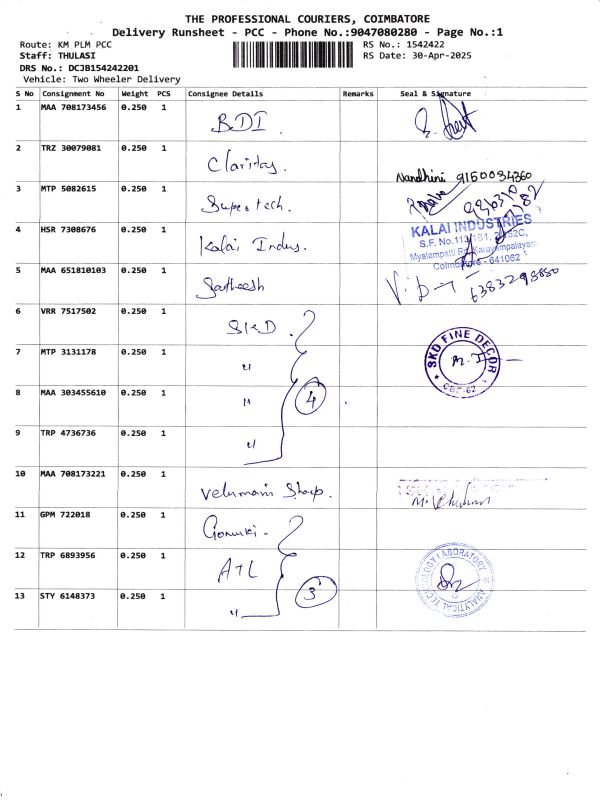 THE PROFESSIONAL COURIERS, COIMBATORE
Delivery Runsheet - PCC - Phone No.:9047080280 - Page No.:1
Route: KM PLM PCC
RS No.: 1542422
Staff: THULASI
RS Date: 30-Apr-2025
DRS No.: DCJB154242201
Vehicle: Two Wheeler Delivery
S No Consignment No Weight PCS Consignee Details Remarks Seal & Signature
1 MAA 708173456 0.250 1 BDI.
2 TRZ 30079081 0.250 1 Claritas.
Nandhini 9160094360
3 MTP 5082615 0.250 1 Supertech.
4 HSR 7308676 0.250 1 Kalai Indus.
KALAI INDUSTRIES
Coimbatore - 641062
5 MAA 651810103 0.250 1 Satheesh
6383298880
6 VRR 7517502 0.250 1 SKD
7 MTP 3131178 0.250 1 "
SKD FINE DECOR
CBE-62
8 MAA 303455610 0.250 1 " 4
9 TRP 4736736 0.250 1 "
10 MAA 708173221 0.250 1 Velumani Shop.
11 GPM 722018 0.250 1
12 TRP 6893956 0.250 1 ATL
ANALYTICAL TECHNOLOGY LABORATORY
13 STY 6148373 0.250 1 " 3